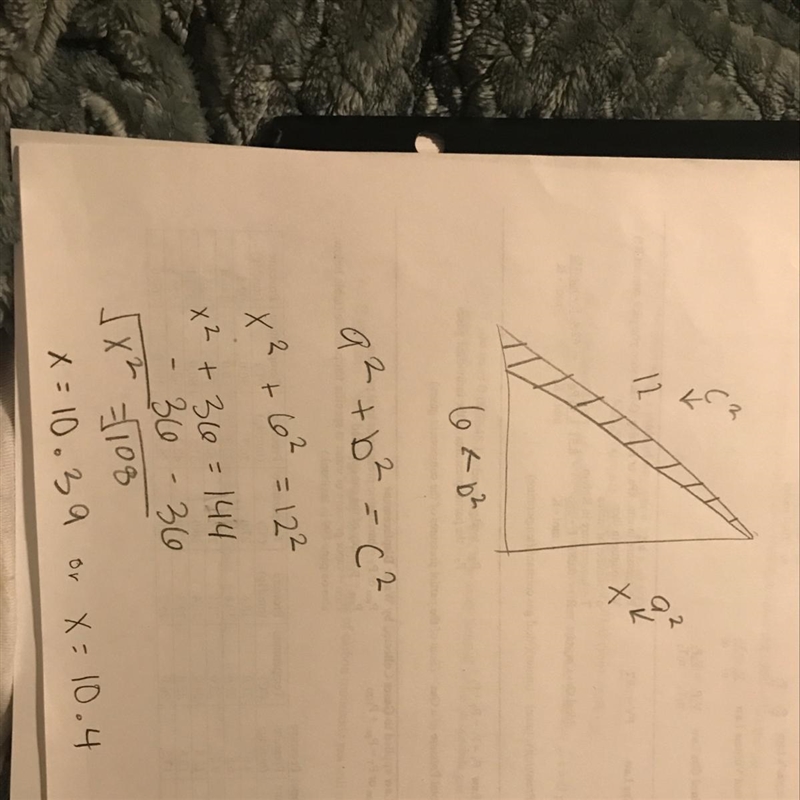 c²
12
a²
x
6 < b²
a² + b² = c²
x² + 6² = 12²
x² + 36 = 144
- 36 - 36
√x² = √108
x = 10.39 or x = 10.4